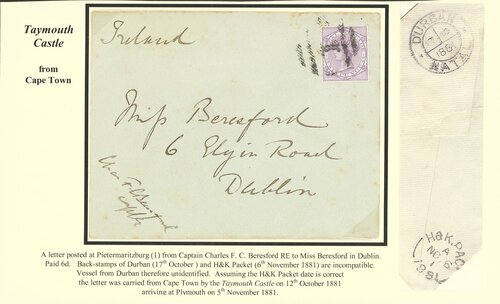 Taymouth
Castle
from
Cape Town
Ireland
Miss Beresford
6 Elgin Road
Dublin
Capt RE
DURBAN
NATAL
H&K PACKET
NO
1881
A letter posted at Pietermaritzburg (1) from Captain Charles F. C. Beresford RE to Miss Beresford in Dublin.
Paid 6d. Back-stamps of Durban (17th October ) and H&K Packet (6th November 1881) are incompatible.
Vessel from Durban therefore unidentified. Assuming the H&K Packet date is correct
the letter was carried from Cape Town by the Taymouth Castle on 12th October 1881
arriving at Plymouth on 5th November 1881.